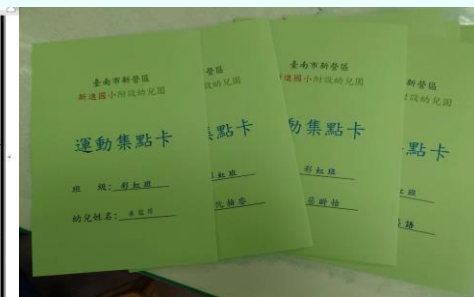 臺南市新營區
新進國小附設幼兒園
運動集點卡
班 級：彩虹班
幼兒姓名：
營區
設幼兒園
集點卡
虹班
臺南市新營區
進國小附設幼兒園
動集點卡
彩虹班
新營區
幼兒園
點卡
班